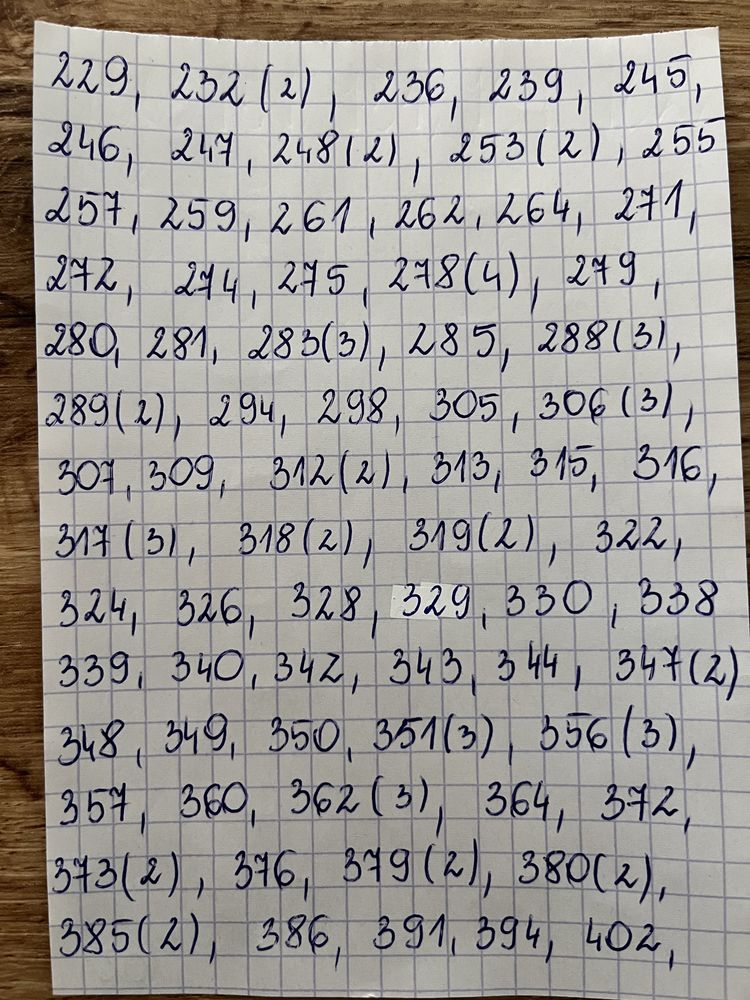 229, 232(2), 236, 239, 245,
246, 247, 248(2), 253(2), 255
257, 259, 261, 262, 264, 271,
272, 274, 275, 278(4), 279,
280, 281, 283(3), 285, 288(3),
289(2), 294, 298, 305, 306(3),
307, 309, 312(2), 313, 315, 316,
317(3), 318(2), 319(2), 322,
324, 326, 328, 329, 330, 338
339, 340, 342, 343, 344, 347(2)
348, 349, 350, 351(3), 356(3),
357, 360, 362(3), 364, 372,
373(2), 376, 379(2), 380(2),
385(2), 386, 391, 394, 402,